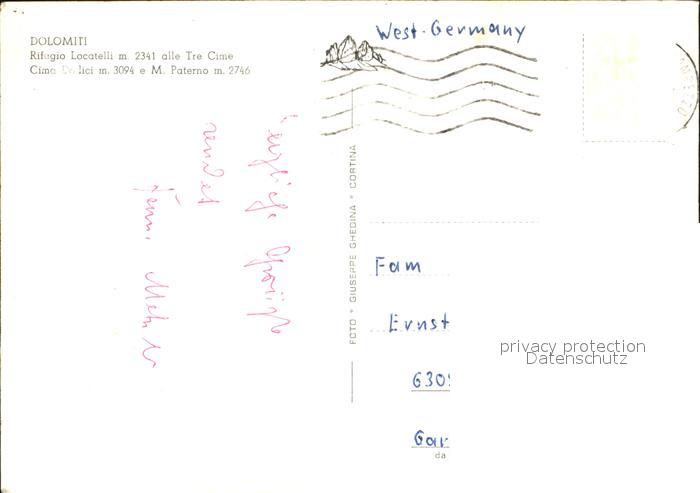 DOLOMITI
Rifugio Locatelli m. 2341 alle Tre Cime
m. 3094 e M. Paterno m. 2746
West-Germany
Herzliche Grüße
sendet
Fam.
FOTO * GIUSEPPE GHEDINA * CORTINA
Fam
Ernst
630
Gar
da
privacy protection
Datenschutz